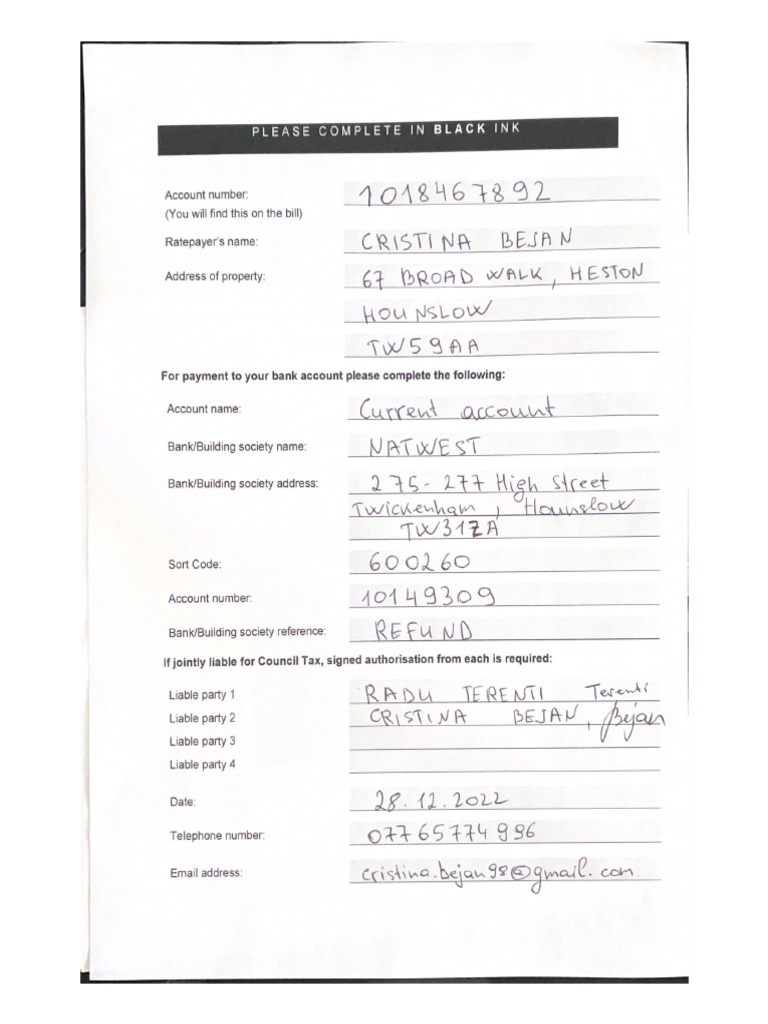 PLEASE COMPLETE IN BLACK INK
Account number: 1018467892
(You will find this on the bill)
Ratepayer's name: CRISTINA BEJAN
Address of property: 67 BROAD WALK, HESTON
HOUNSLOW
TW59AA
For payment to your bank account please complete the following:
Account name: Current account
Bank/Building society name: NATWEST
Bank/Building society address: 275-277 High Street
Twickenham, Hounslow
TW31ZA
Sort Code: 600260
Account number: 10149309
Bank/Building society reference: REFUND
If jointly liable for Council Tax, signed authorisation from each is required:
Liable party 1 RADU TERENTI Terenti
Liable party 2 CRISTINA BEJAN, Bejan
Liable party 3
Liable party 4
Date: 28.12.2022
Telephone number: 07765774996
Email address: cristina.bejan98@gmail.com.